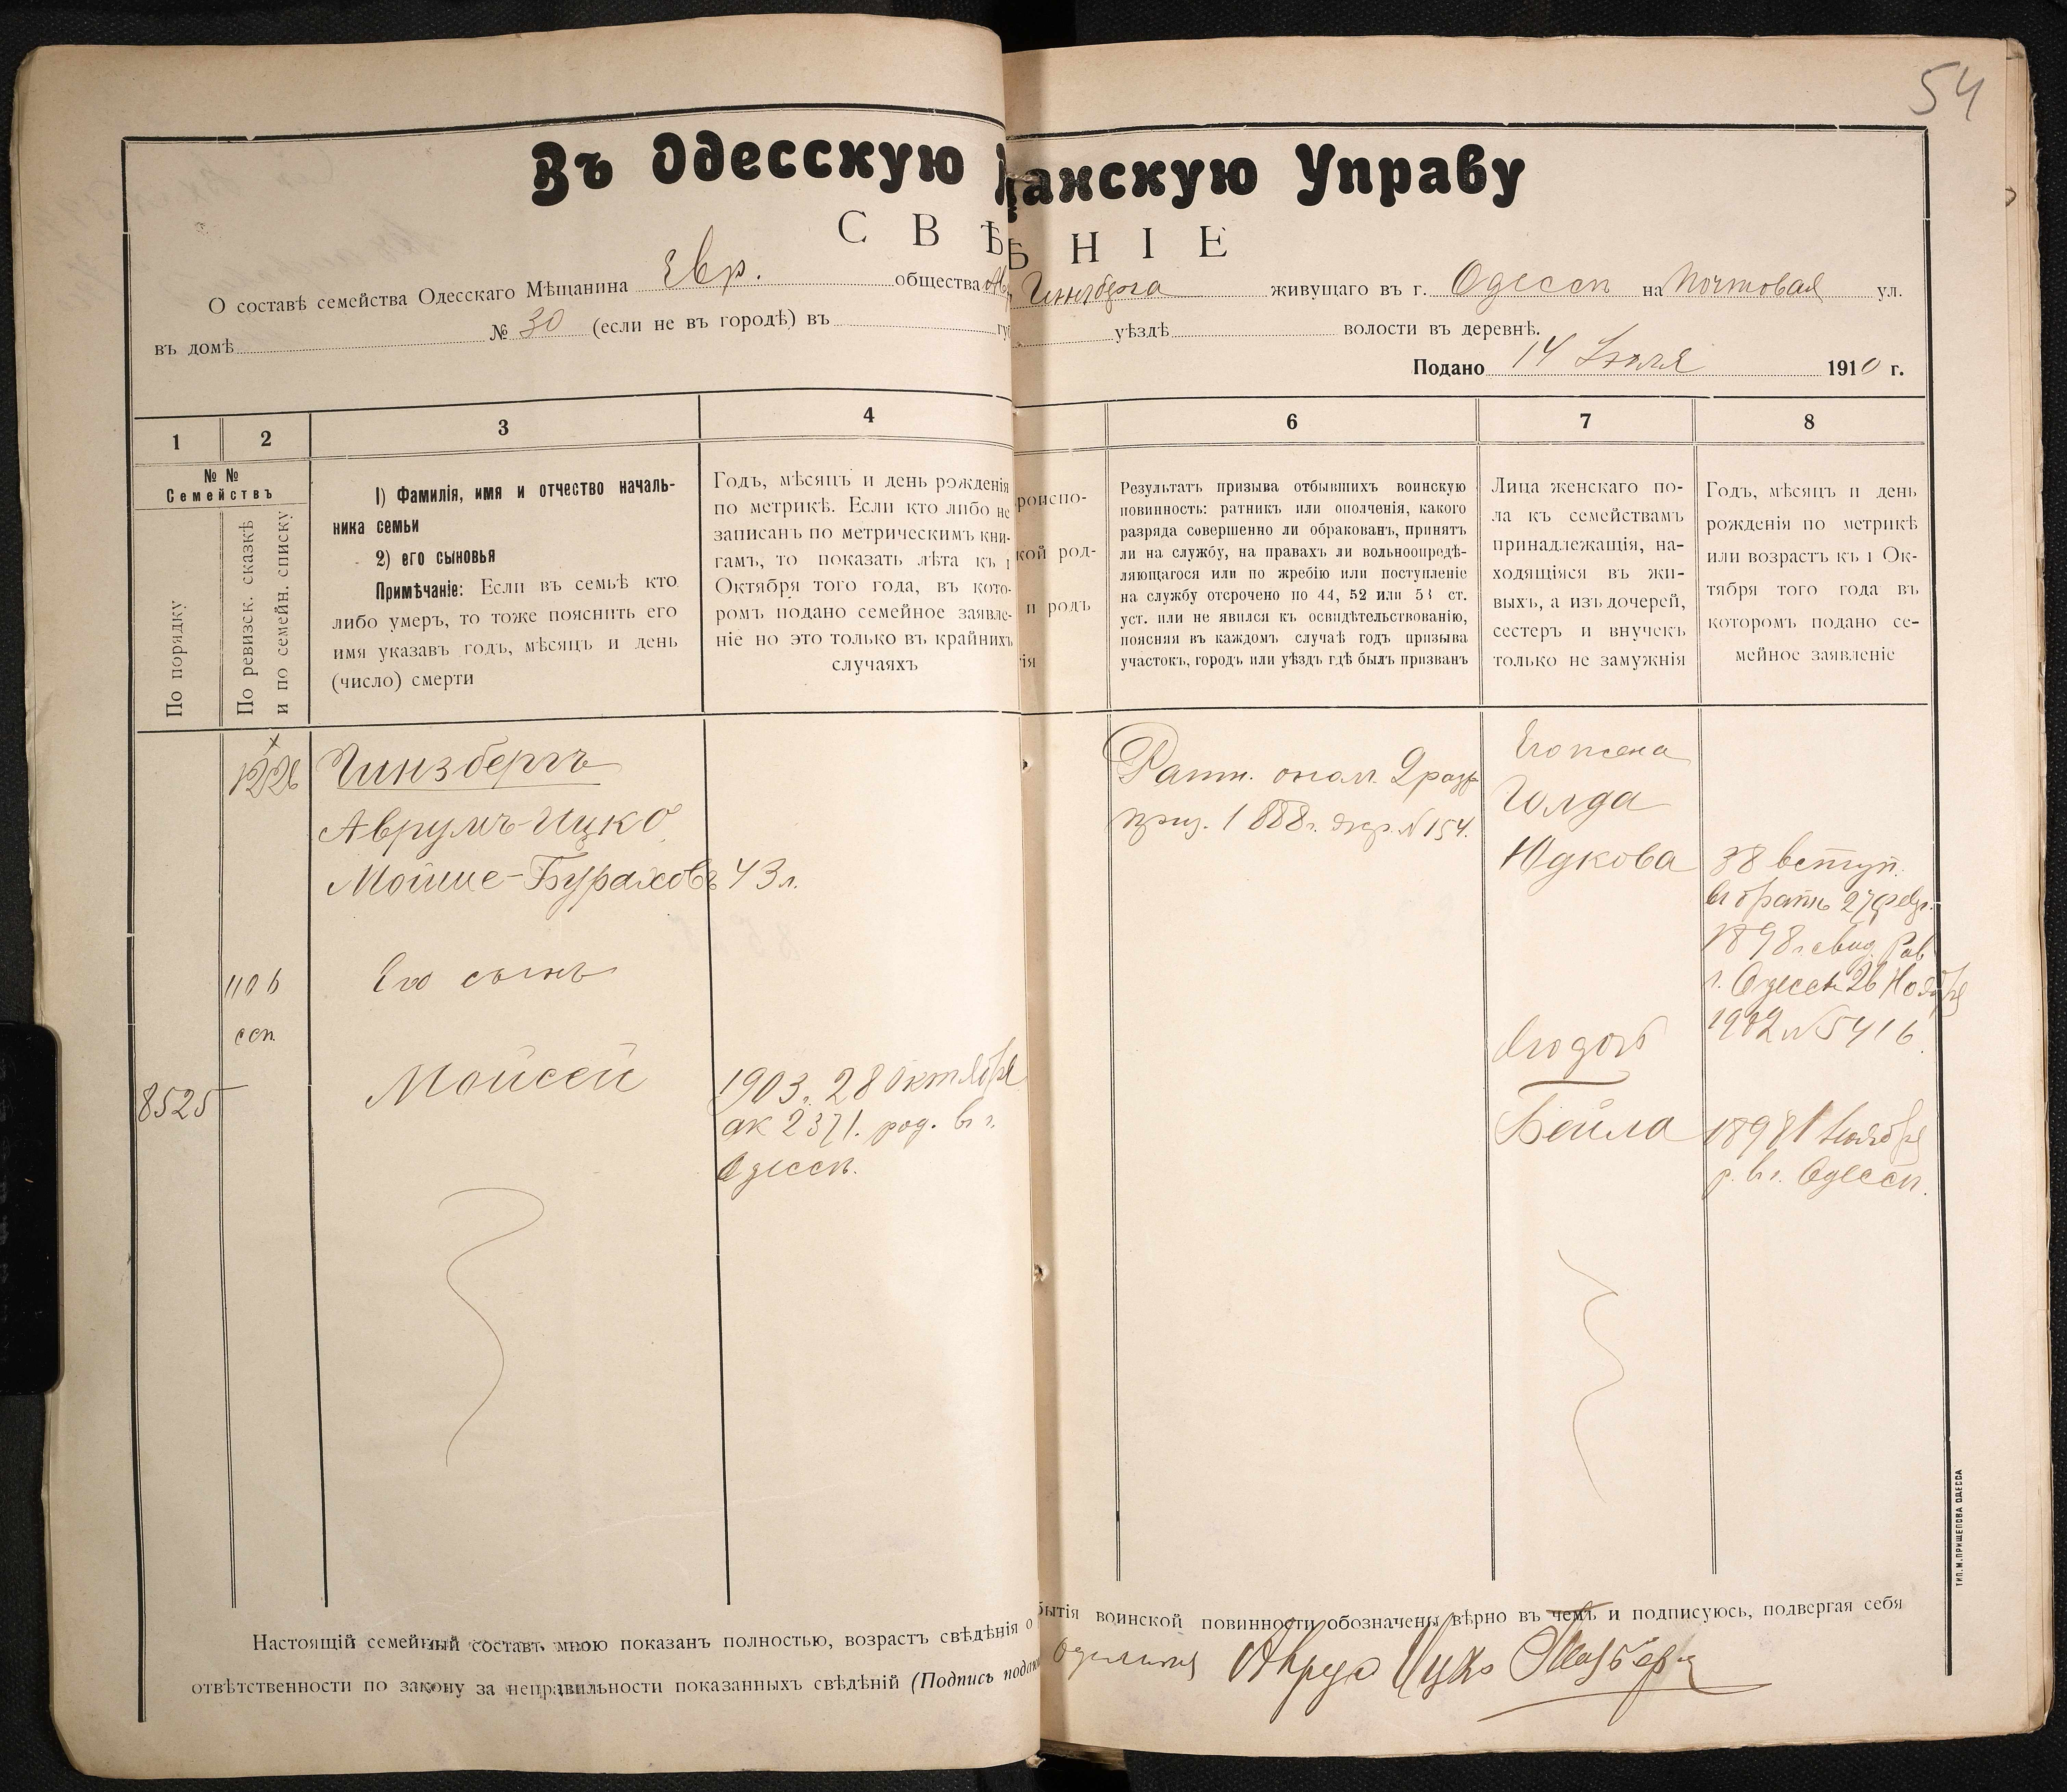 54
Въ Одесскую
анскую Управу
СВѢ
НІЕ
О составѣ семейства Одесскаго Мѣщанина Евр. общества
Гинзберга живущаго въ г. Одессѣ на Почтовая ул.
въ домѣ № 30 (если не въ городѣ) въ
уѣздѣ волости въ деревнѣ.
Подано 14 Іюля 1910 г.
1 2 3 4
6 7 8
№ №
Семействъ
По порядку
По ревизск. сказкѣ
и по семейн. списку
1) Фамилія, имя и отчество началь-
ника семьи
2) его сыновья
Примѣчаніе: Если въ семьѣ кто
либо умеръ, то тоже пояснить его
имя указавъ годъ, мѣсяцъ и день
(число) смерти
Годъ, мѣсяцъ и день рожденія
по метрикѣ. Если кто либо не
записанъ по метрическимъ кни-
гамъ, то показать лѣта къ 1
Октября того года, въ кото-
ромъ подано семейное заявле-
ніе но это только въ крайнихъ
случаяхъ
роиспо-
кой род-
и родъ
ія
Результатъ призыва отбывшихъ воинскую
повинность: ратникъ или ополченія, какого
разряда совершенно ли обракованъ, принятъ
ли на службу, на правахъ ли вольноопредѣ-
ляющагося или по жребію или поступленіе
на службу отсрочено по 44, 52 или 53 ст.
уст. или не явился къ освидѣтельствованію,
поясняя въ каждомъ случаѣ годъ призыва
участокъ, городъ или уѣздъ гдѣ былъ призванъ
Лица женскаго по-
ла къ семействамъ
принадлежащія, на-
ходящіяся въ жи-
выхъ, а изъ дочерей,
сестеръ и внучекъ
только не замужнія
Годъ, мѣсяцъ и день
рожденія по метрикѣ
или возрастъ къ 1 Ок-
тября того года въ
которомъ подано се-
мейное заявленіе
1226
Гинзбергъ
Аврумъ-Ицко
Мойше-Бураховъ 43 л.
1106
ссп.
Его сынъ
8525
Мойсей
1903 г. 28 октября
ак 2371. род. въ г.
Одессѣ.
Ратн. опол. 2 разр
приз. 1888 г. жер. № 154.
Его жена
Голда
Юдкова
38 вступ.
въ бракъ 27 февр.
1898 г. свид. Рав
г. Одессы 26 Ноября
1902 № 5416
Его дочь
Бейла
1898 1 Ноября
р. в г. Одессѣ.
Настоящій семейный составъ мною показанъ полностью, возрастъ свѣдѣнія о
бытія воинской повинности обозначены вѣрно въ чемъ и подписуюсь, подвергая себя
отвѣтственности по закону за неправильности показанныхъ свѣдѣній (Подпись
Аврум Ицко
ТИП. М. ПРИЩЕПОВА ОДЕССА